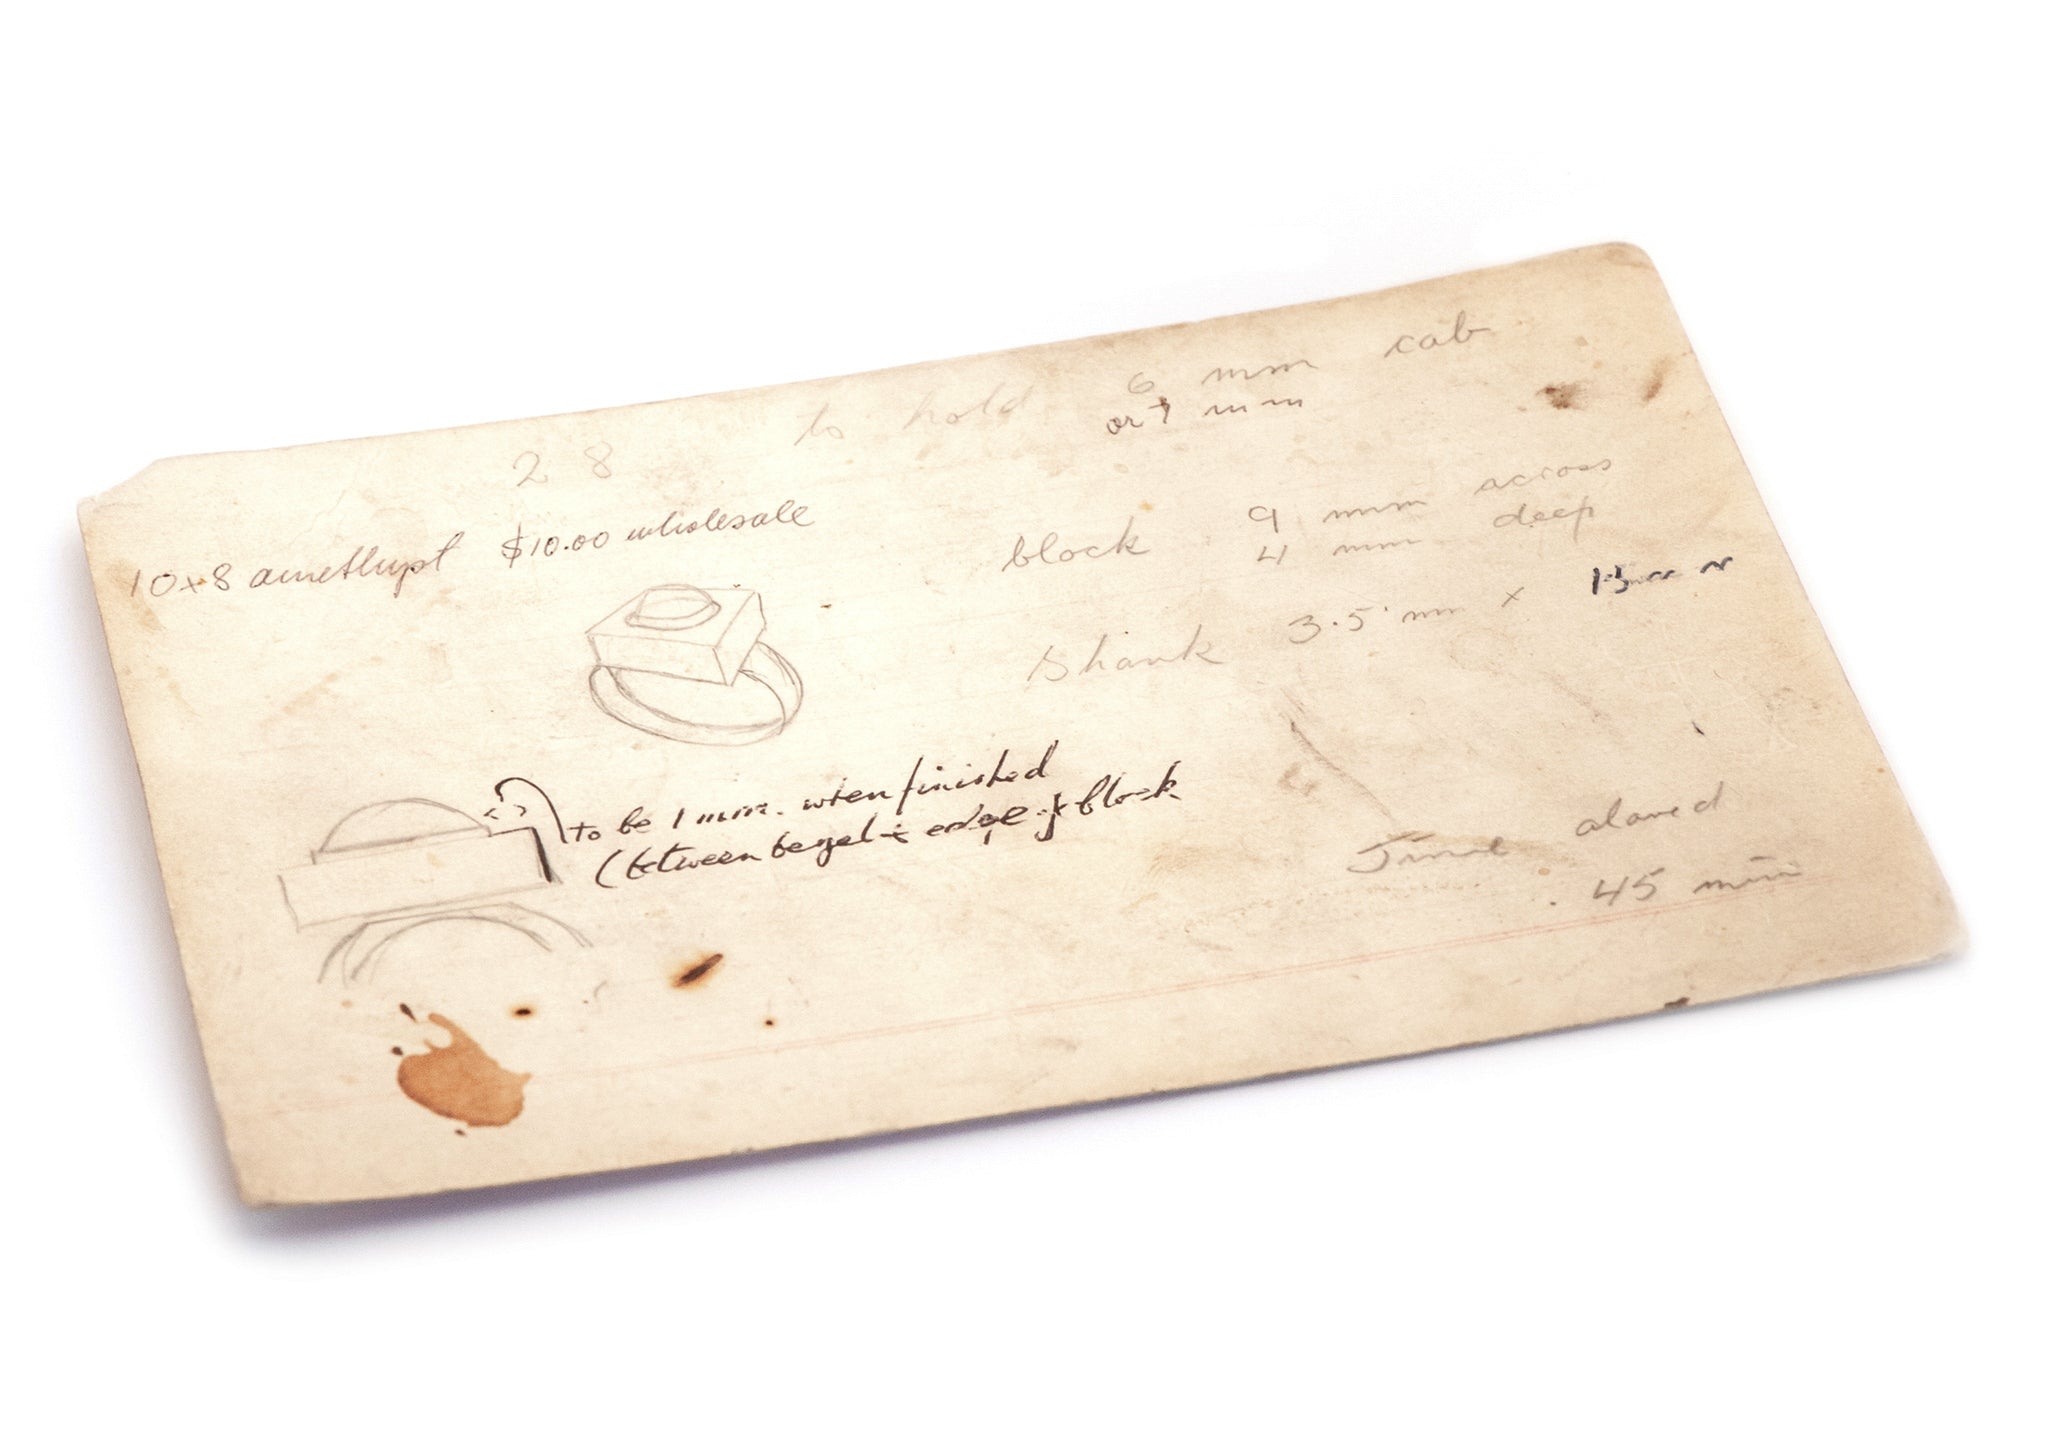 28 to hold 6 mm cab
or 7 mm
10+8 amethyst $10.00 wholesale
block 9 mm across
4 mm deep
Shank 3.5 mm x
to be 1 mm. when finished
(between bezel + edge of block
Time alowed
45 min